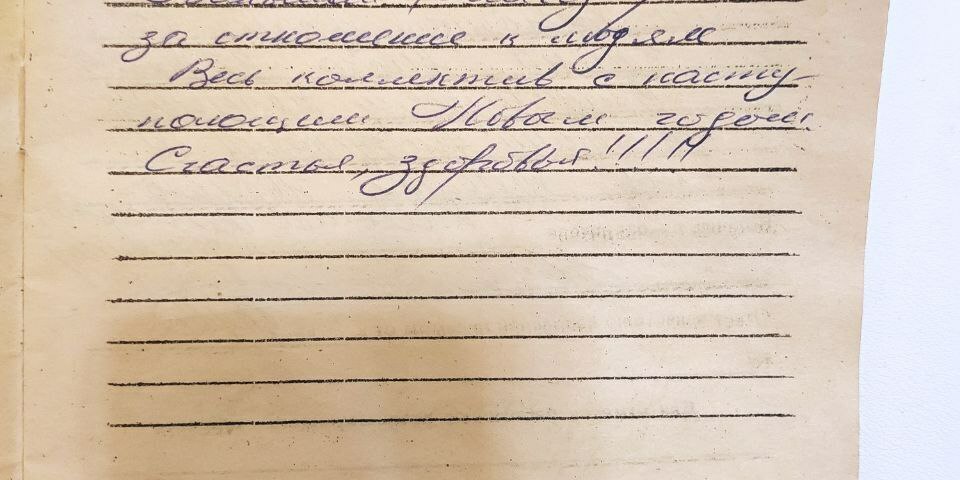 за отношение к людям
Весь коллектив с насту-
пающим Новым годом
Счастья, здоровья!!!!!